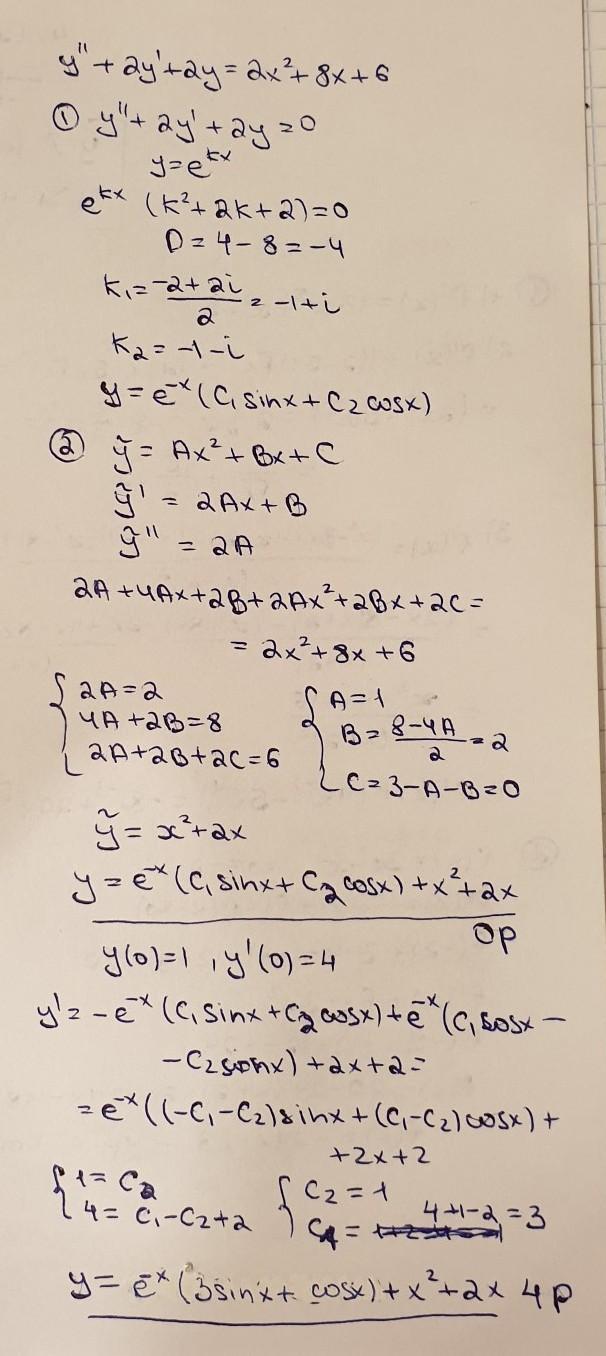 y'' + 2y' + 2y = 2x² + 8x + 6
① y'' + 2y' + 2y = 0
y = e^kx
e^kx (k² + 2k + 2) = 0
D = 4 - 8 = -4
k₁ = (-2 + 2i)/2 = -1 + i
k₂ = -1 - i
y = e^-x (C₁ sinx + C₂ cosx)
② ỹ = Ax² + Bx + C
ỹ' = 2Ax + B
ỹ'' = 2A
2A + 4Ax + 2B + 2Ax² + 2Bx + 2C =
= 2x² + 8x + 6
{ 2A = 2 { A = 1
4A + 2B = 8 B = (8 - 4A)/2 = 2
2A + 2B + 2C = 6 C = 3 - A - B = 0
ỹ = x² + 2x
y = e^-x (C₁ sinx + C₂ cosx) + x² + 2x
Op
y(0) = 1 , y'(0) = 4
y' = -e^-x (C₁ sinx + C₂ cosx) + e^-x (C₁ cosx -
- C₂ sinx) + 2x + 2 =
= e^-x ((-C₁ - C₂) sinx + (C₁ - C₂) cosx) +
+ 2x + 2
{ 1 = C₂ { C₂ = 1
4 = C₁ - C₂ + 2 C₁ = 4 + 1 - 2 = 3
y = e^-x (3 sinx + cosx) + x² + 2x 4p